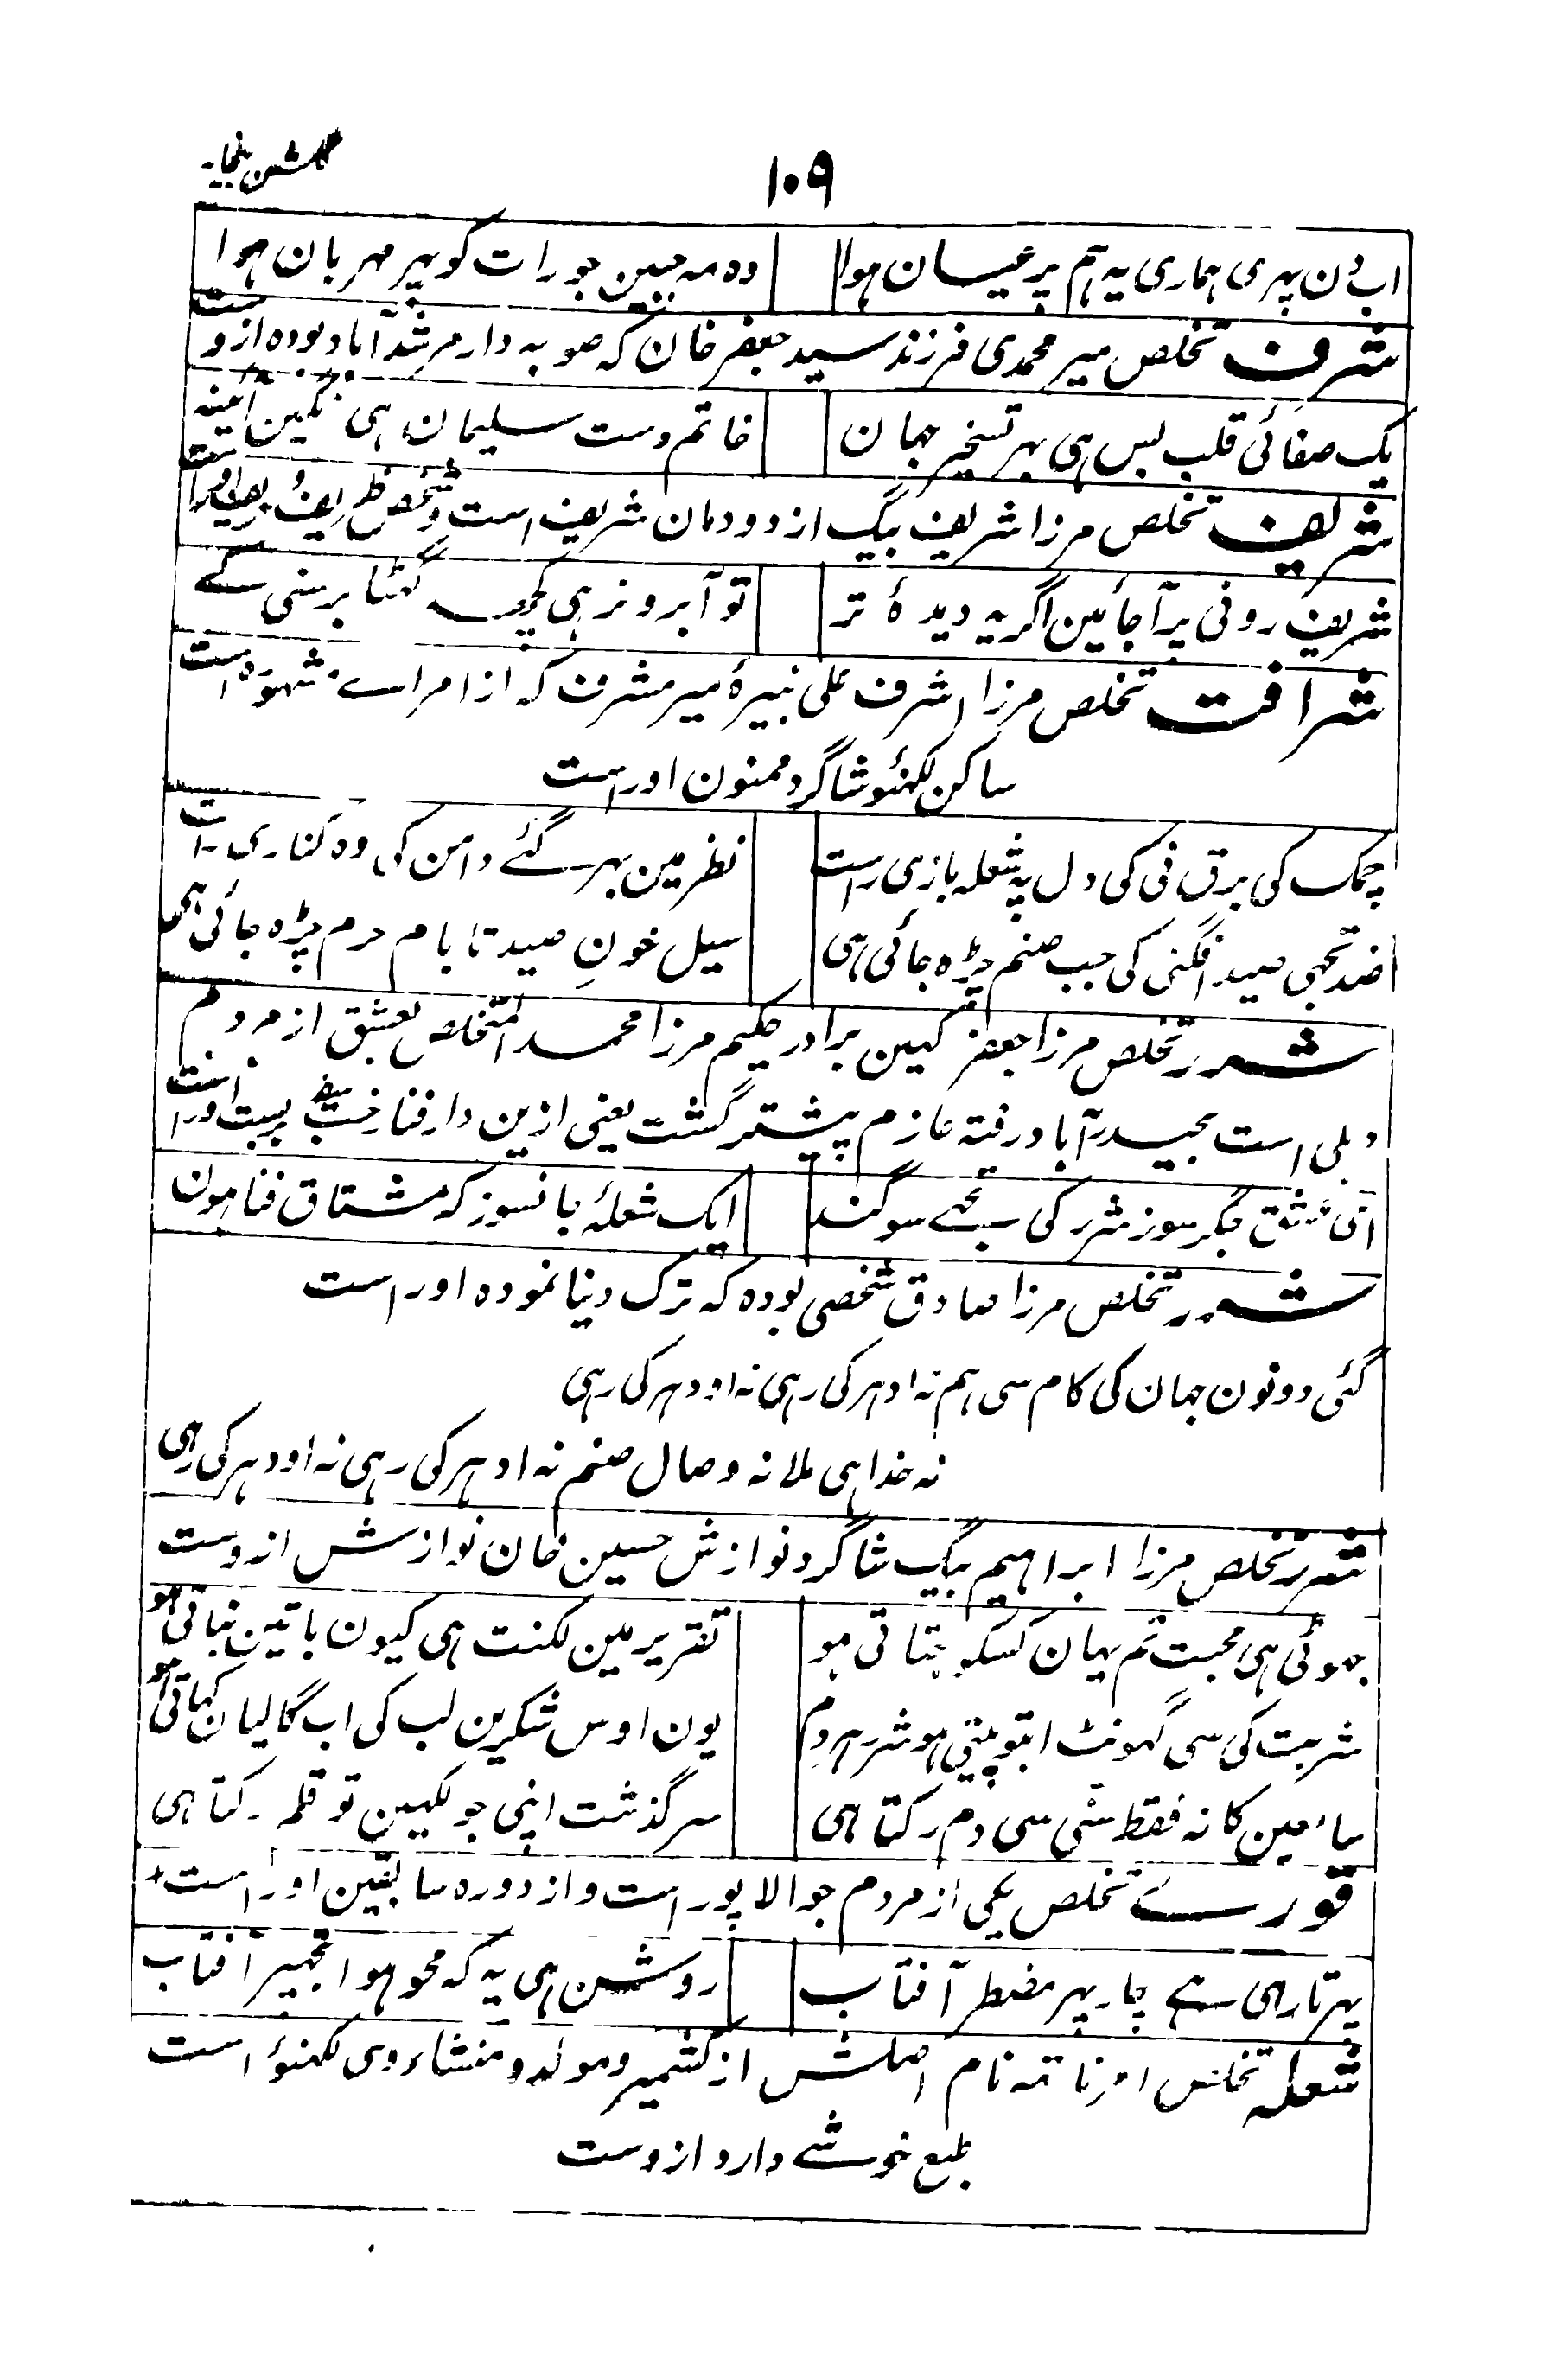 گلشن بیخار
۱۰۹
اب دن پہری ہماری یہ ہم پر عیسان ہوا وہ مہ جبین جو رات کو پہر مہربان ہوا
شرف تخلص میر محمدی فرزند سید جعفر خان کہ صوبہ دار مرشد آباد بودہ ازوست
یک صفائی قلب بس ہی بہر تسخیر جہان خاتم دست سلیمان ہی نگین آئینہ
شریف تخلص مرزا شریف بیگ از دودمان شریف است و شخص ظریف
شریف رونی پر آجائین اگر یہ دیدۂ تر تو آبرو نرہی کچھ گھٹا برسنی کے
شرافت تخلص مرزا اشرف علی نبیرۂ میر مشرف کہ از امراے مشہورہ است
ساکن لکہنؤ شاگرد ممنون اوراست
چمک کی برق نی کی دل پہ شعلہ بازی رات نظر مین بہر گئے دامن کی وہ کناری رات
ضد تجہی صید افگنی کی جب صنم چڑہ جائی ہی سیل خونِ صید تا بام حرم چڑہ جائی ہی
شرر تخلص مرزا جعفر کہین برادر حکیم مرزا محمد المتخلص بعشق از مردم
دہلی است بحیدرآباد رفتہ عازم پیشتر گشت یعنی ازین دار فنا رخت سفر بربست اوراست
عشق جگر سوز شرر کی تجھے سوگند ایک شعلۂ جانسوز کہ مشتاق فنا ہون
شرر تخلص مرزا صادق شخصی بودہ کہ ترک دنیا نمودہ اوراست
گئی دونون جہان کی کام سی ہم نہ ادہر کی رہی نہ اودہر کی رہی
نہ خدا ہی ملا نہ وصال صنم نہ ادہر کی رہی نہ اودہر کی رہی
شرر تخلص مرزا ابراہیم بیگ شاگرد نوازش حسین خان نوازش ازوست
جہوٹی ہی محبت تم یہان کسکو جتاتی ہو تقریر مین لکنت ہی کیون باتین بناتی ہو
شربت کی سی گہونٹ ابتو پیتی ہو شرر ہردم یون اوس شکرین لب کی اب گالیان کہاتی ہو
سامعین کا نہ فقط سنی سی دم رکتا ہی سرگذشت اپنی جو لکہین تو قلم رکتا ہی
تخلص یکی از مردم جوالاپور است و از دورہ سابقین اوراست
پہرتا رہی ہے چار پہر مضطر آفتاب روشن ہی یہ کہ محو ہوا تجہپر آفتاب
شعلہ تخلص امرناتہ نام اصلش از کشمیر و مولد و منشاء وی لکہنؤ است
طبع خوشے دارد ازوست